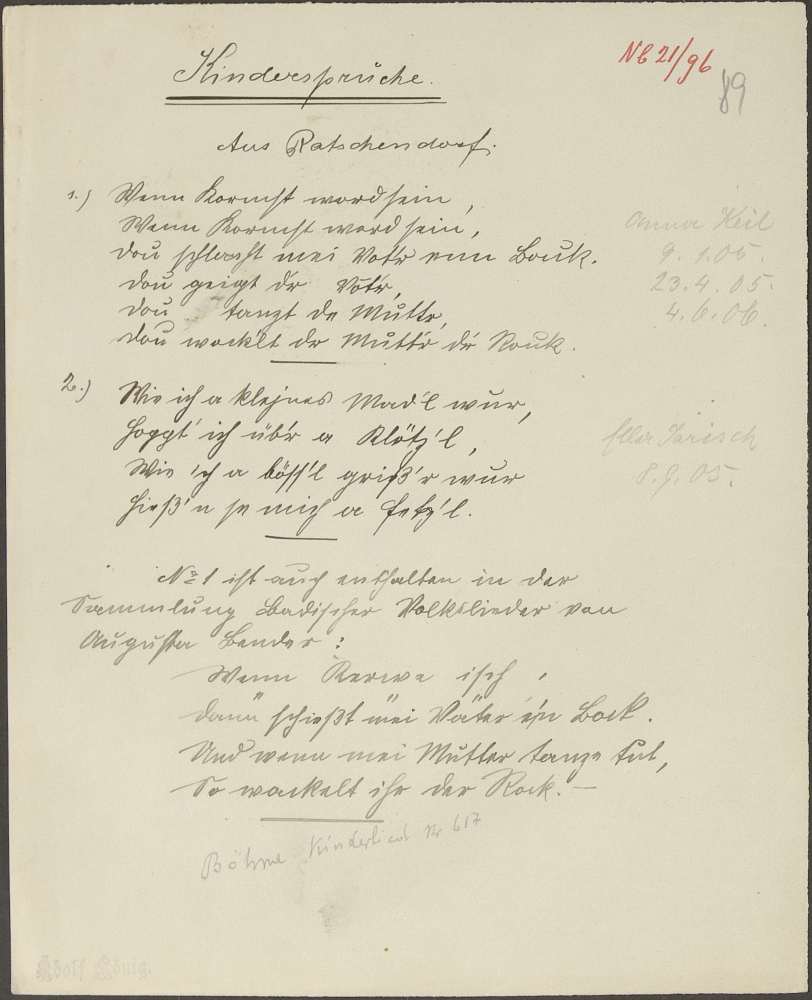 Nb 21/96
89
Kindersprüche.
Aus Ratschendorf.
1.) Wenn Kormst word sein,
Wenn Kormst word sein,
Dou schlacht mei Vot'r enn Bouk.
Dou geigt d'r Vot'r,
Dou tanzt de Mutt'r,
Dou wockelt dr Mutt'r dr Rouk.
Anna Keil
9. 1. 05.
23. 4. 05.
4. 6. 06.
2.) Wie ich a klejnes Mad'l wur,
Hoppt' ich üb'r a Klötz'l,
Wie ich a böss'l griß'r wur
Hieß'n se mich a Fetz'l.
Ella Jarisch
8. 9. 05.
No 1 ist auch enthalten in der
Sammlung Badischer Volkslieder von
Augusta Bender:
Wenn Kerwe isch,
Dann schießt mei Vater e'n Bock.
Und wenn mei Mutter tanze tut,
So wackelt ihr der Rock. –
Böhme Kinderlied Nr 657
Adolf König.